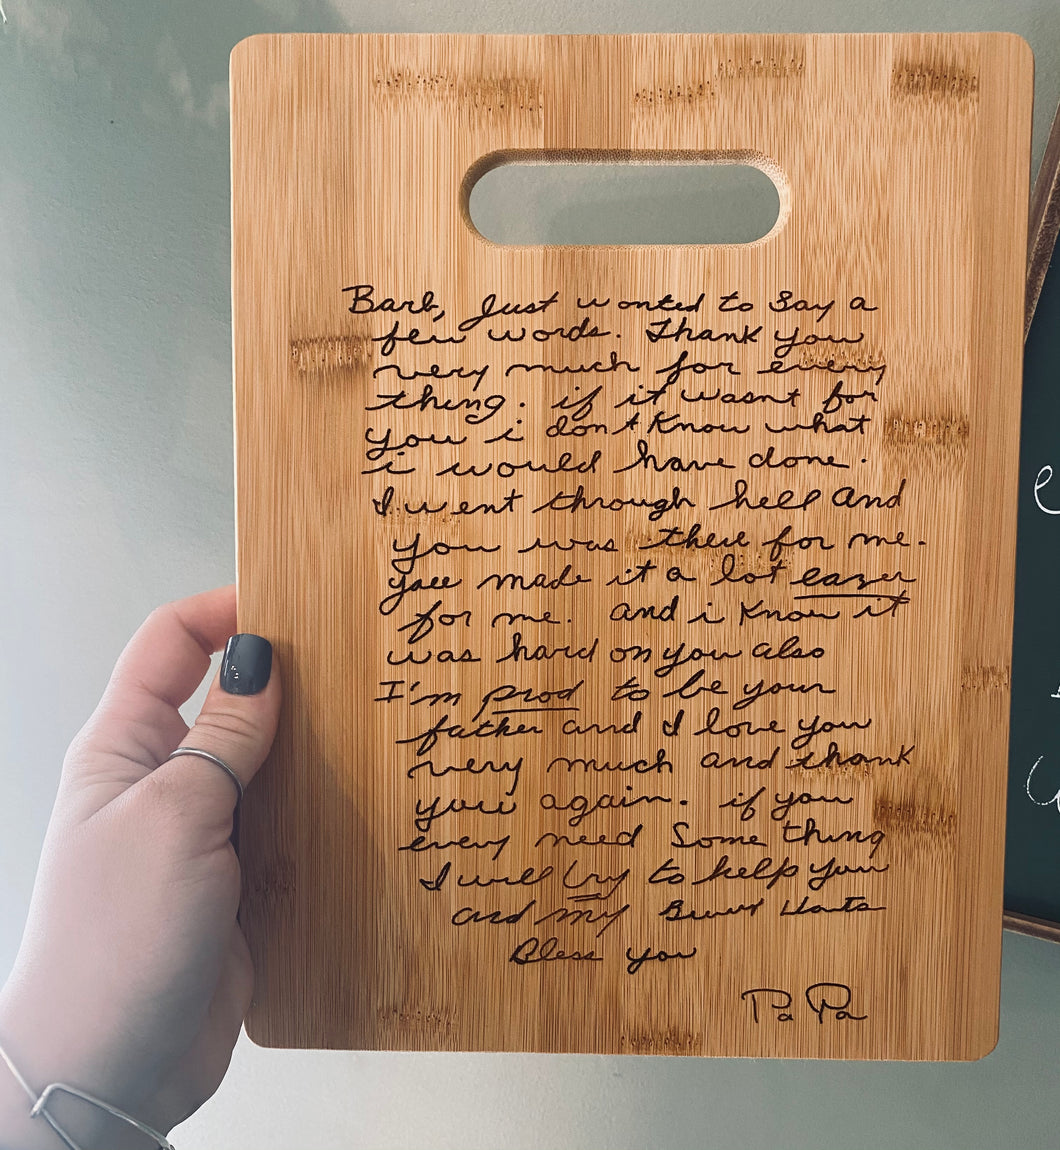 Barb, Just wonted to Say a
few words. Thank you
very much for every
thing. if it wasnt for
you i don't know what
i would have done.
I went through hell and
you was there for me.
you made it a lot easer
for me. and i know it
was hard on you also
I'm prod to be your
father and I love you
very much and thank
you again. if you
every need Some thing
I will try to help you
and my
Bless you
Pa Pa
e